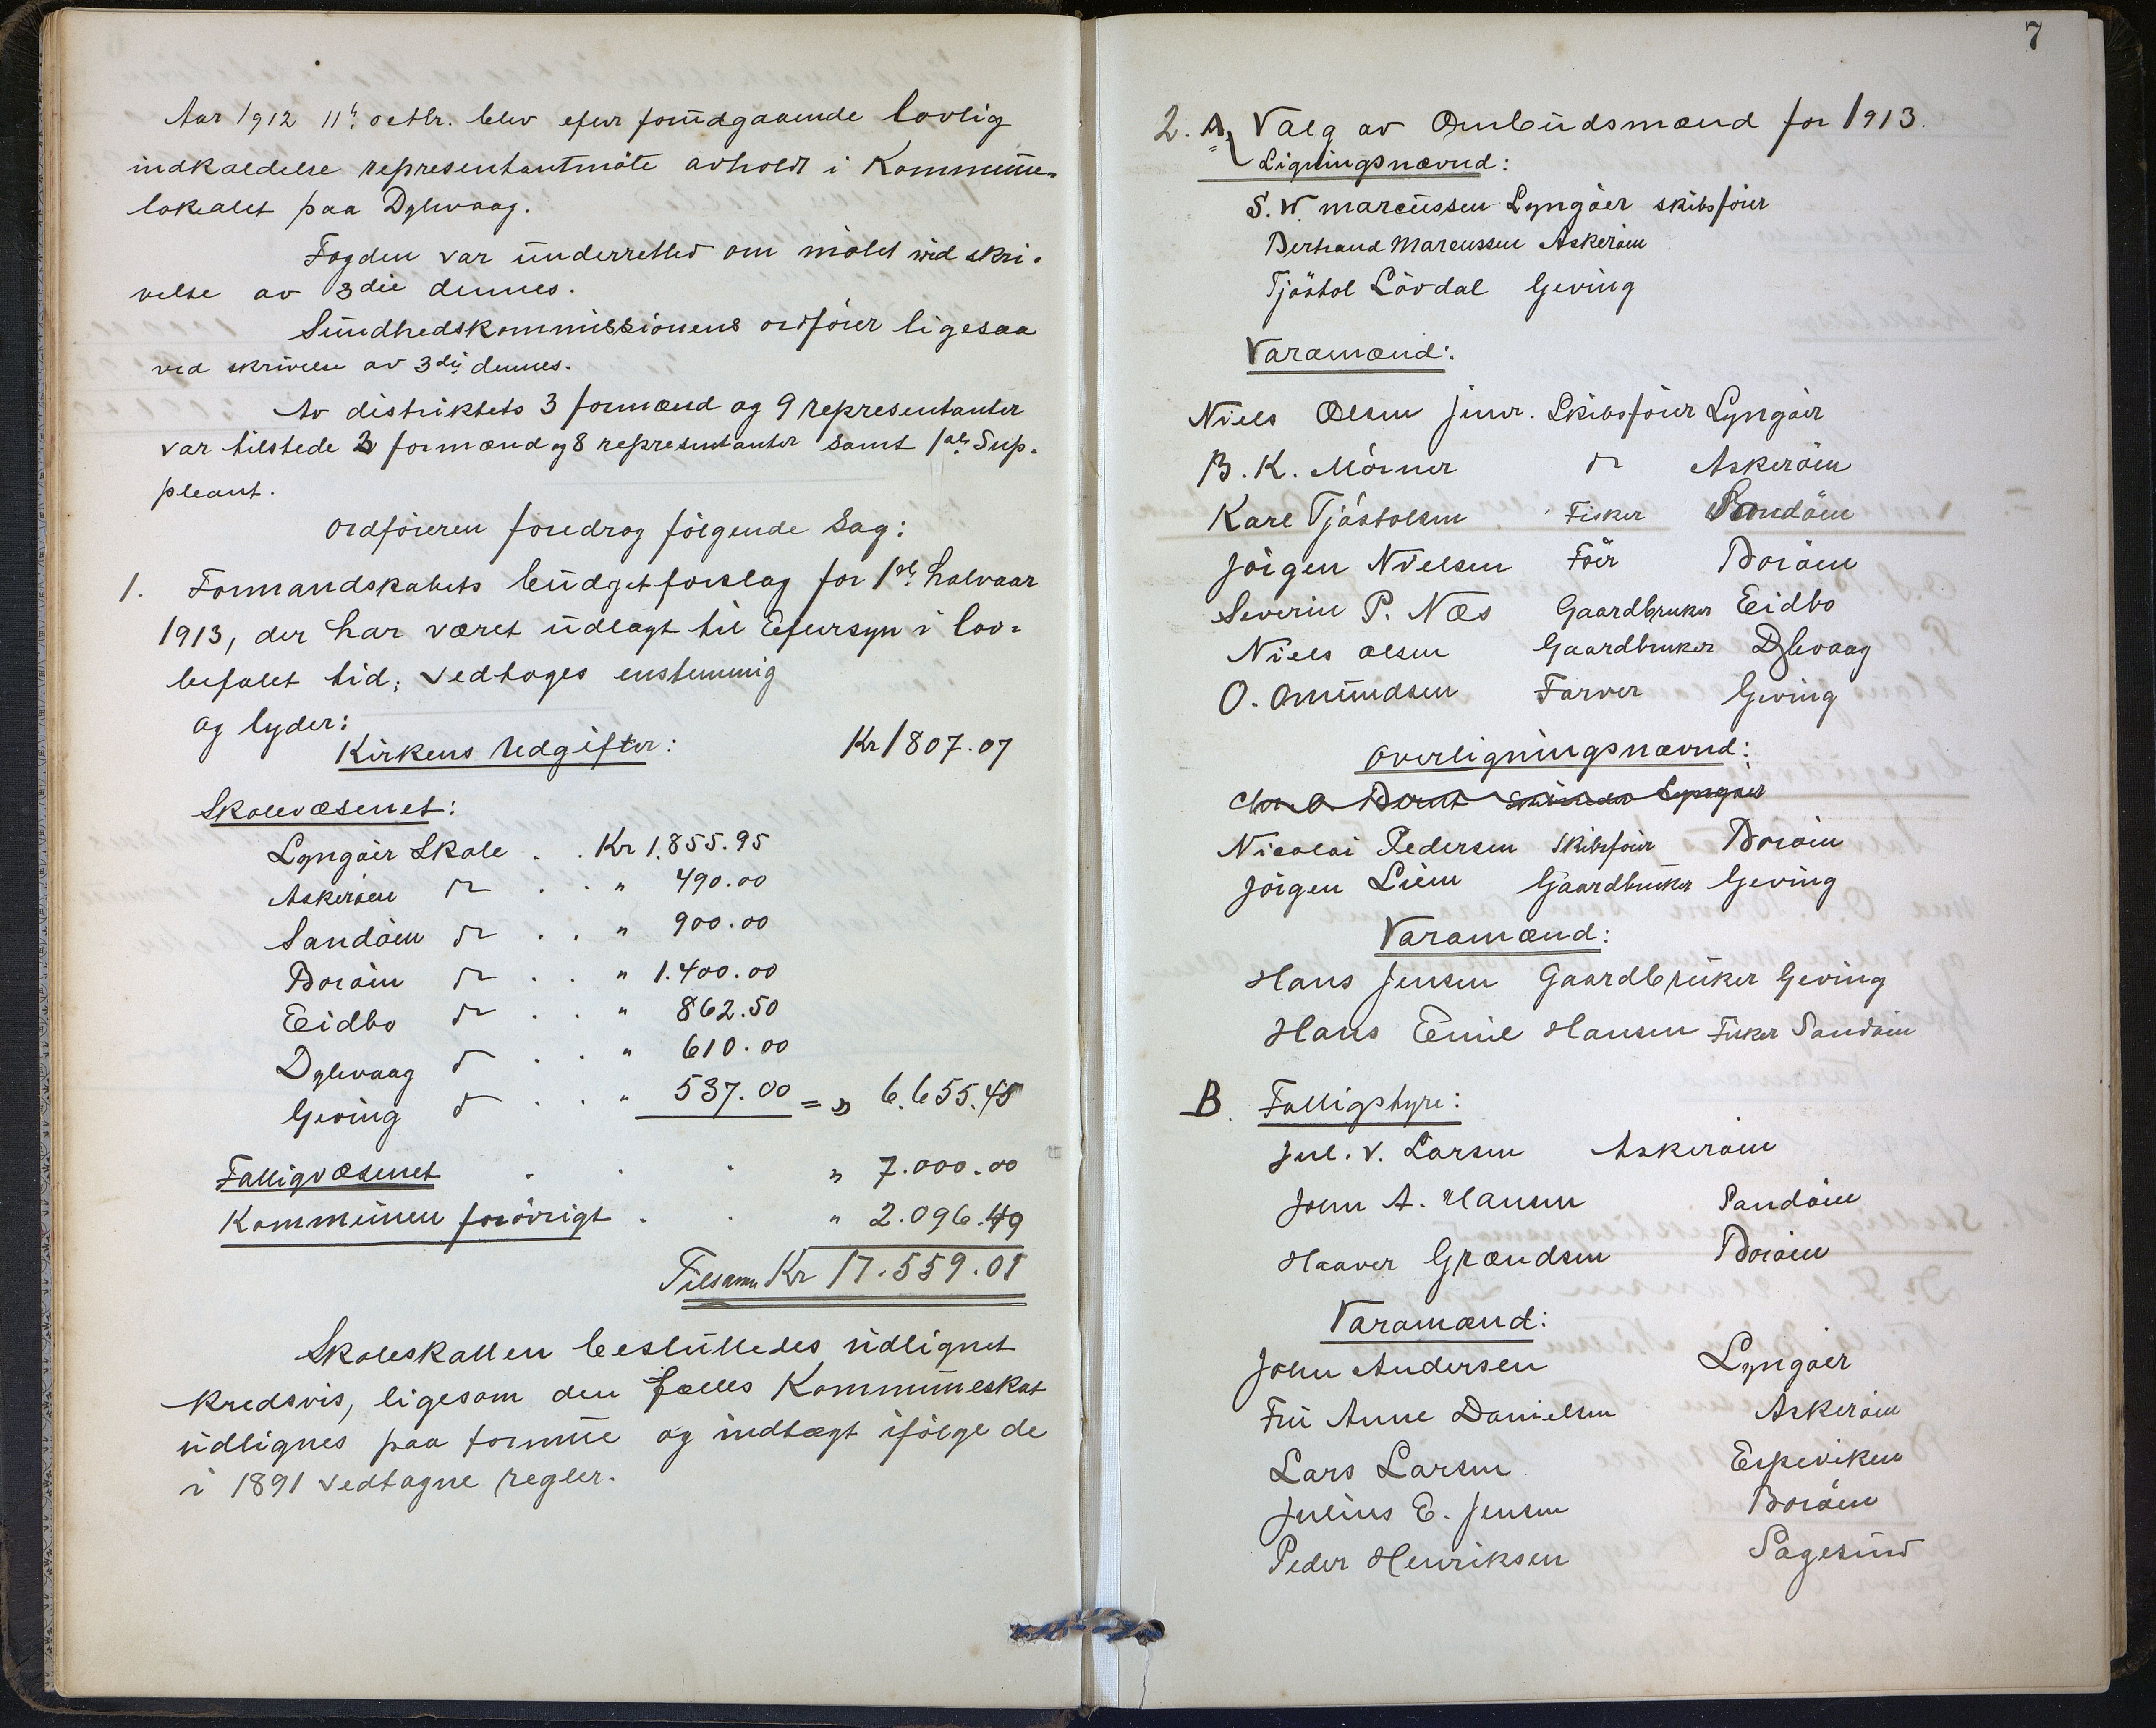 Aar 1912 11te octbr. blev efter forudgaaende lovlig
indkaldelse representantmöte avholdt i Kommune-
lokalet paa Dybvaag.
Fogden var underrettet om mötet ved skri-
velse av 3die dennes.
Sundhedskommissionens ordförer ligesaa
ved skrivelse av 3die dennes.
Av distriktets 3 formænd og 9 representanter
var tilstede 3 formænd og 8 representanter samt 1ste Sup-
pleant.
Ordföreren foredrog fölgende Sag:
1. Formandskabets budgetforslag for 1ste halvaar
1913, der har været udlagt til Eftersyn i lov-
befalet tid; vedtoges enstemmig
og lyder:
Kirkens Udgifter: Kr 1807.07
Skolevæsenet:
Lyngöer Skole . . Kr 1.855.95
Askeröen do . . " 490.00
Sandöen do . . " 900.00
Boröen do . . " 1.400.00
Eidbo do . . " 862.50
Dybvaag do . . " 610.00
Geving do . . " 537.00 = " 6.655.45
Fattigvæsenet . . . " 7.000.00
Kommunen forövrigt . . " 2.096.49
Tilsamm Kr 17.559.01
Skoleskatten besluttedes udlignet
kredsvis, ligesom den fælles Kommuneskat
udlignes paa formue og indtægt ifölge de
i 1891 vedtagne regler.
7
2. A. Valg av Ombudsmænd for 1913.
Ligningsnævnd:
S. W. Marcussen Lyngöer skibsförer
Bertrand Marcussen Askeröen
Tjöstol Lövdal Geving
Varamænd:
Niels Olsen junr. Skibsförer Lyngöer
B. K. Mörner do Askeröen
Karl Tjöstolsen Fisker Sandöen
Jörgen Nielsen Förer Boröen
Severin P. Næs Gaardbruker Eidbo
Niels Olsen Gaardbruker Dybvaag
O. Omundsen Farver Geving
Overligningsnævnd:
Lyngöer
Nicolai Pedersen Skibsförer Boröen
Jörgen Liene Gaardbruker Geving
Varamænd:
Hans Jensen Gaardbruker Geving
Hans Emil Hansen Fisker Sandöen
B. Fattigstyre:
Jul. V. Larsen Askeröen
John A. Hansen Sandöen
Haaver Grændsen Boröen
Varamænd:
John Andersen Lyngöer
Fru Anne Danielsen Askeröen
Lars Larsen Espeviken
Julius E. Jensen Boröen
Peder Henriksen Sagesund